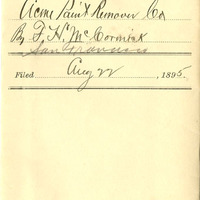 Acme Paint Remover Co
By F. H. McCormick
San Francisco
Filed Aug 22, 1895.